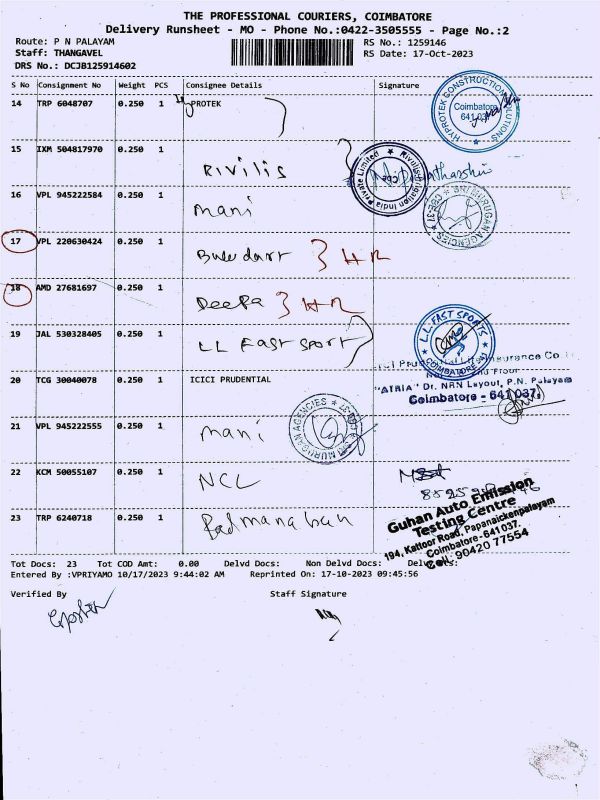 THE PROFESSIONAL COURIERS, COIMBATORE
Delivery Runsheet - MO - Phone No.:0422-3505555 - Page No.:2
Route: P N PALAYAM RS No.: 1259146
Staff: THANGAVEL RS Date: 17-Oct-2023
DRS No.: DCJB125914602
S No Consignment No Weight PCS Consignee Details Signature
14 TRP 6048707 0.250 1 PROTEK
HYPROTEK CONSTRUCTION SOLUTIONS
Coimbatore
15 IXM 504817970 0.250 1
Rivilis
India Private Limited
16 VPL 945222584 0.250 1
mani
MURUGAN AGENCIES
17 VPL 220630424 0.250 1
Bluedart 3 HR
18 AMD 27681697 0.250 1
Deepa 3 HR
19 JAL 530328405 0.250 1
LL Fast Sport
L.L. FAST SPORTS
COIMBATORE
20 TCG 30040078 0.250 1 ICICI PRUDENTIAL
"ATRIA" Dr. NRN Layout, P.N. Palayam
Coimbatore - 641 037
21 VPL 945222555 0.250 1
mani
MURUGAN AGENCIES
22 KCM 50055107 0.250 1
NCL
23 TRP 6240718 0.250 1
Padmanaban
Guhan Auto Emission
Testing Centre
194, Kattoor Road, Papanaickenpalayam
Coimbatore-641037.
Cell: 90420 77554
Tot Docs: 23 Tot COD Amt: 0.00 Delvd Docs: Non Delvd Docs:
Entered By :VPRIYAMO 10/17/2023 9:44:02 AM Reprinted On: 17-10-2023 09:45:56
Verified By Staff Signature